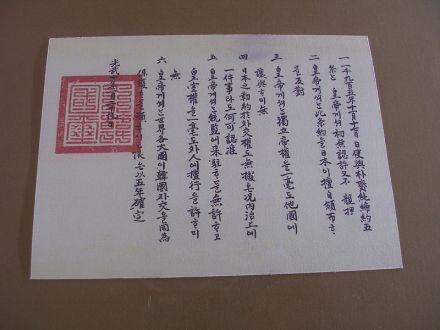 一 一千九百五年十一月十七日 日使與朴齊純締約五
條는 皇帝게셔 初無認許又不 親押
二 皇帝게셔는 此條約을 日本이 擅自頒布
을 反對
三 皇帝게셔는 獨立帝權을 一毫도 他國에
讓與 無
四 日本之勒約於外交權도 無據온 況內治上에
一件事라도 何可認准
五 皇帝게셔는 統監에 來駐 을 無許 고
皇室權을 一毫도 外人에 擅行을 許 미
無
六 皇帝게셔는 世界各大國이 韓國外交을 同爲
保護 을 願 限은 以五年確定
光武 年一月 九日